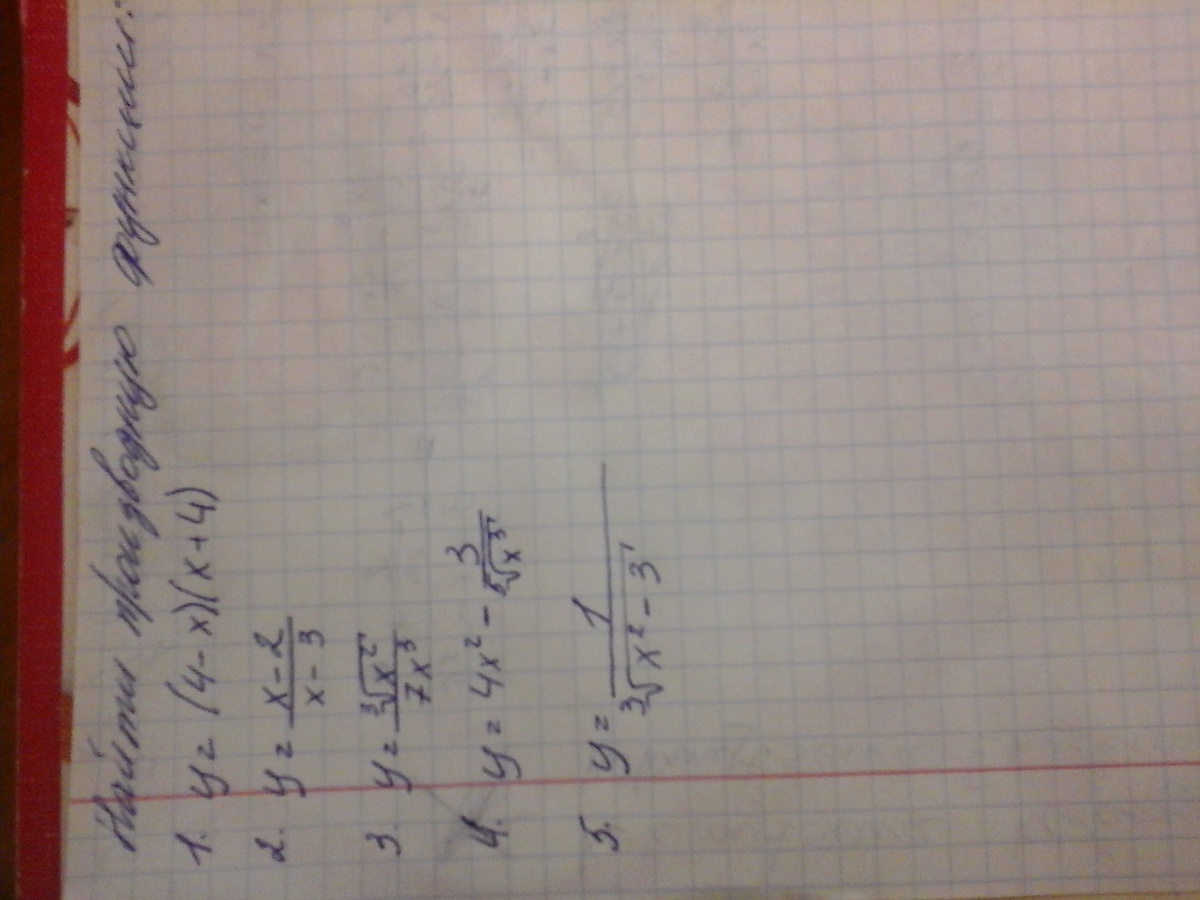 Найти производную функции:
1. y = (4 - x)(x + 4)
2. y = \frac{x - 2}{x - 3}
3. y = \frac{\sqrt[3]{x^2}}{7x^3}
4. y = 4x^2 - \frac{3}{\sqrt[5]{x^3}}
5. y = \frac{1}{\sqrt[3]{x^2 - 3}}